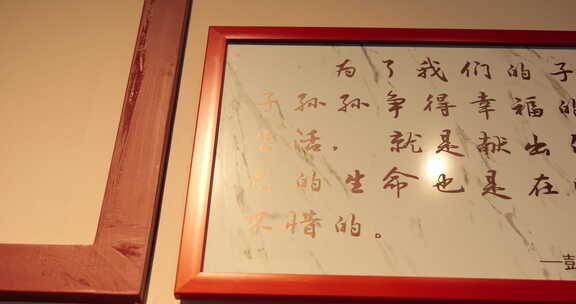 为了我们的子
子孙孙争得幸福的
生活，就是献出
的生命也是在
不惜的。
—彭